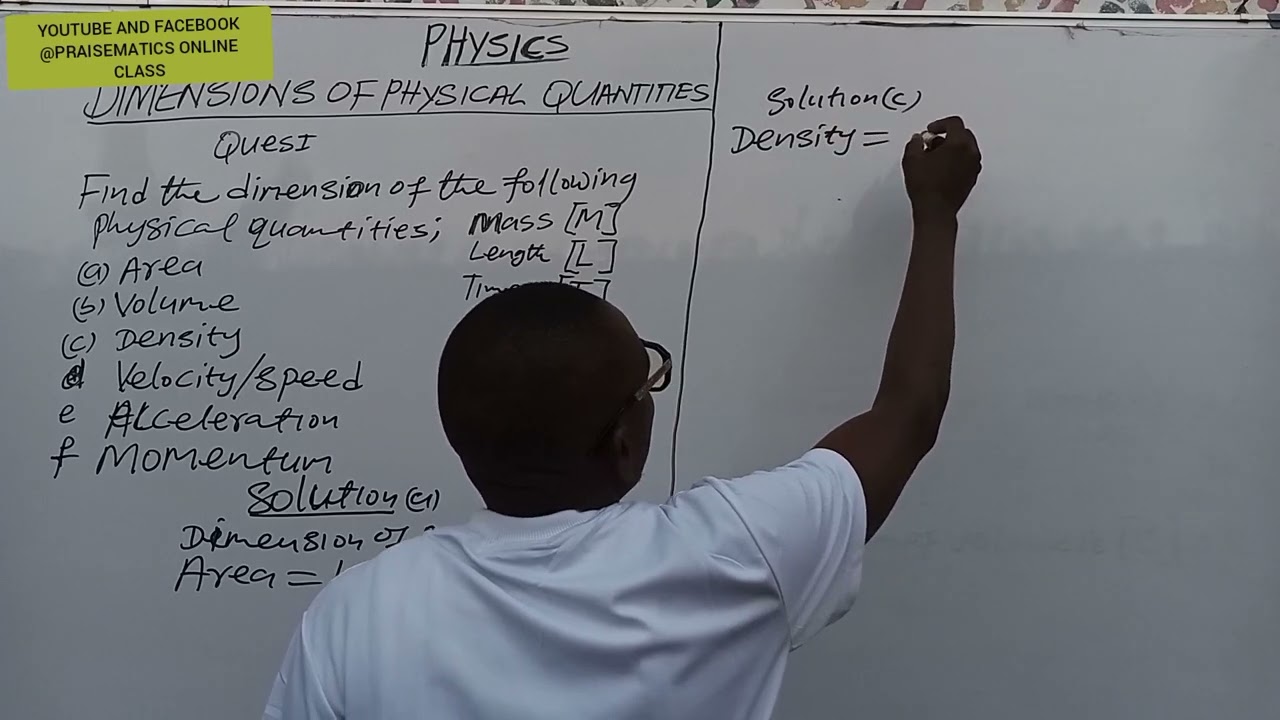 YOUTUBE AND FACEBOOK
@PRAISEMATICS ONLINE
CLASS
PHYSICS
DIMENSIONS OF PHYSICAL QUANTITIES
QUES I
Find the dimension of the following
physical quantities; Mass [M]
Length [L]
(a) Area
[T]
(b) Volume
(c) Density
d Velocity/speed
e Acceleration
f Momentum
Solution (a)
Dimension of
Area =
Solution (c)
Density =